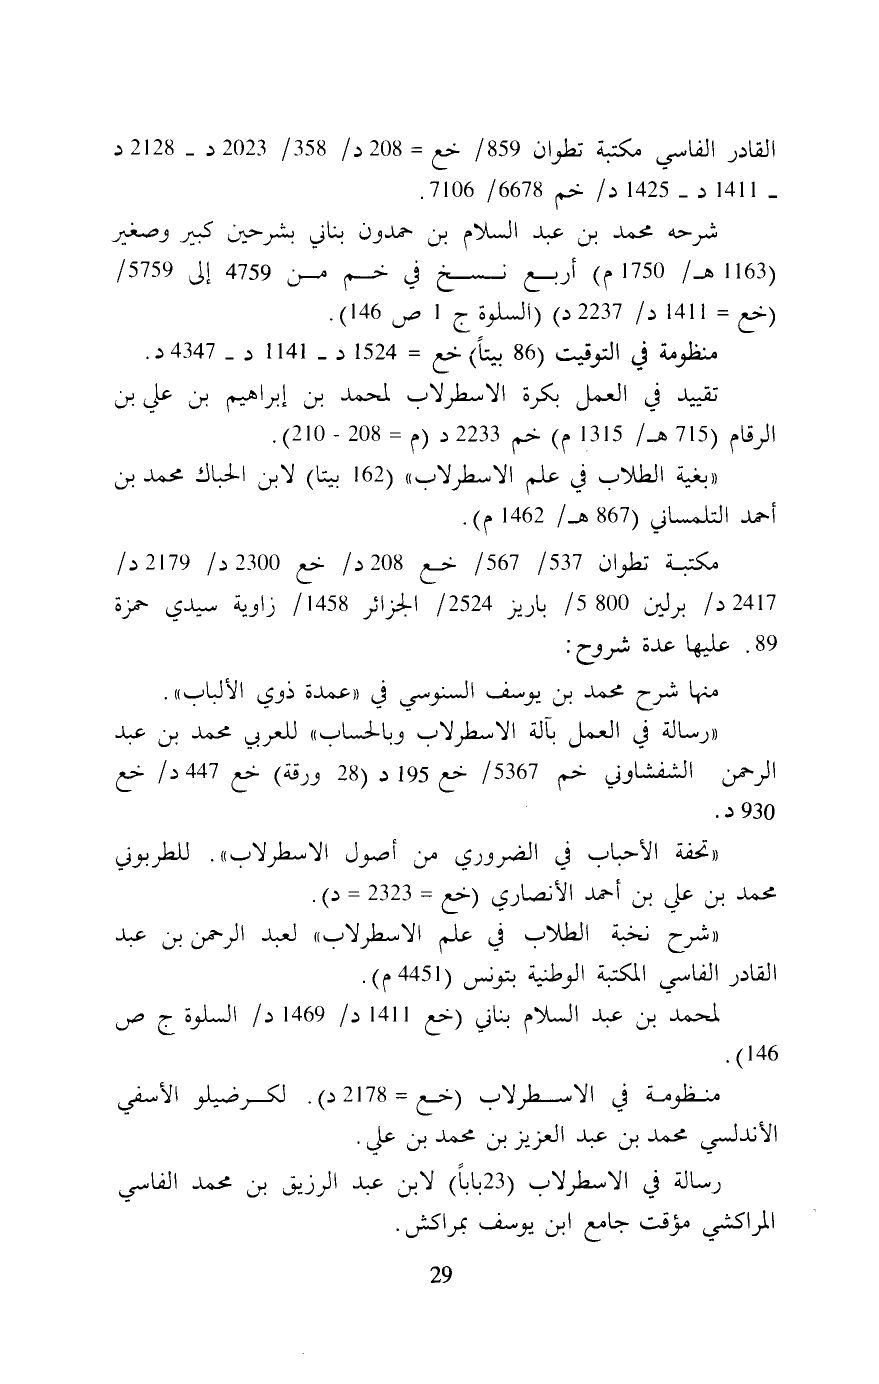 القادر الفاسي مكتبة تطوان 859/ خع = 208 د/ 358/ 2023 د ـ 2128 د
ـ 1411 د ـ 1425 د/ خم 6678/ 7106.
شرحه محمد بن عبد السلام بن حمدون بناني بشرحين كبير وصغير
(1163 هـ/ 1750 م) أربـع نـسـخ في خـم مـن 4759 إلى 5759/
(خع = 1411 د/ 2237 د) (السلوة ج 1 ص 146).
منظومة في التوقيت (86 بيتاً) خع = 1524 د ـ 1141 د ـ 4347 د.
تقييد في العمل بكرة الاسطرلاب لمحمد بن إبراهيم بن علي بن
الرقام (715 هـ/ 1315 م) خم 2233 د (م = 208 - 210).
«بغية الطلاب في علم الاسطرلاب» (162 بيتا) لابن الحباك محمد بن
أحمد التلمساني (867 هـ/ 1462 م).
مكتبـة تطوان 537/ 567/ خـع 208 د/ خع 2300 د/ 2179 د/
2417 د/ برلين 800 5/ باريز 2524/ الجزائر 1458/ زاوية سيدي حمزة
89. عليها عدة شروح:
منها شرح محمد بن يوسف السنوسي في «عمدة ذوي الألباب».
«رسالة في العمل بآلة الاسطرلاب وبالحساب» للعربي محمد بن عبد
الرحمن الشفشاوني خم 5367/ خع 195 د (28 ورقة) خع 447 د/ خع
930 د.
«تحفة الأحباب في الضروري من أصول الاسطرلاب». للطربوني
محمد بن علي بن أحمد الأنصاري (خع = 2323 = د).
«شرح نخبة الطلاب في علم الاسطرلاب» لعبد الرحمن بن عبد
القادر الفاسي المكتبة الوطنية بتونس (4451 م).
لمحمد بن عبد السلام بناني (خع 1411 د/ 1469 د/ السلوة ج ص
146).
منـظومـة في الاسـطرلاب (خـع = 2178 د). لكـرضيلو الأسفي
الأندلسي محمد بن عبد العزيز بن محمد بن علي.
رسالة في الاسطرلاب (23باباً) لابن عبد الرزيق بن محمد الفاسي
المراكشي مؤقت جامع ابن يوسف بمراكش.
29